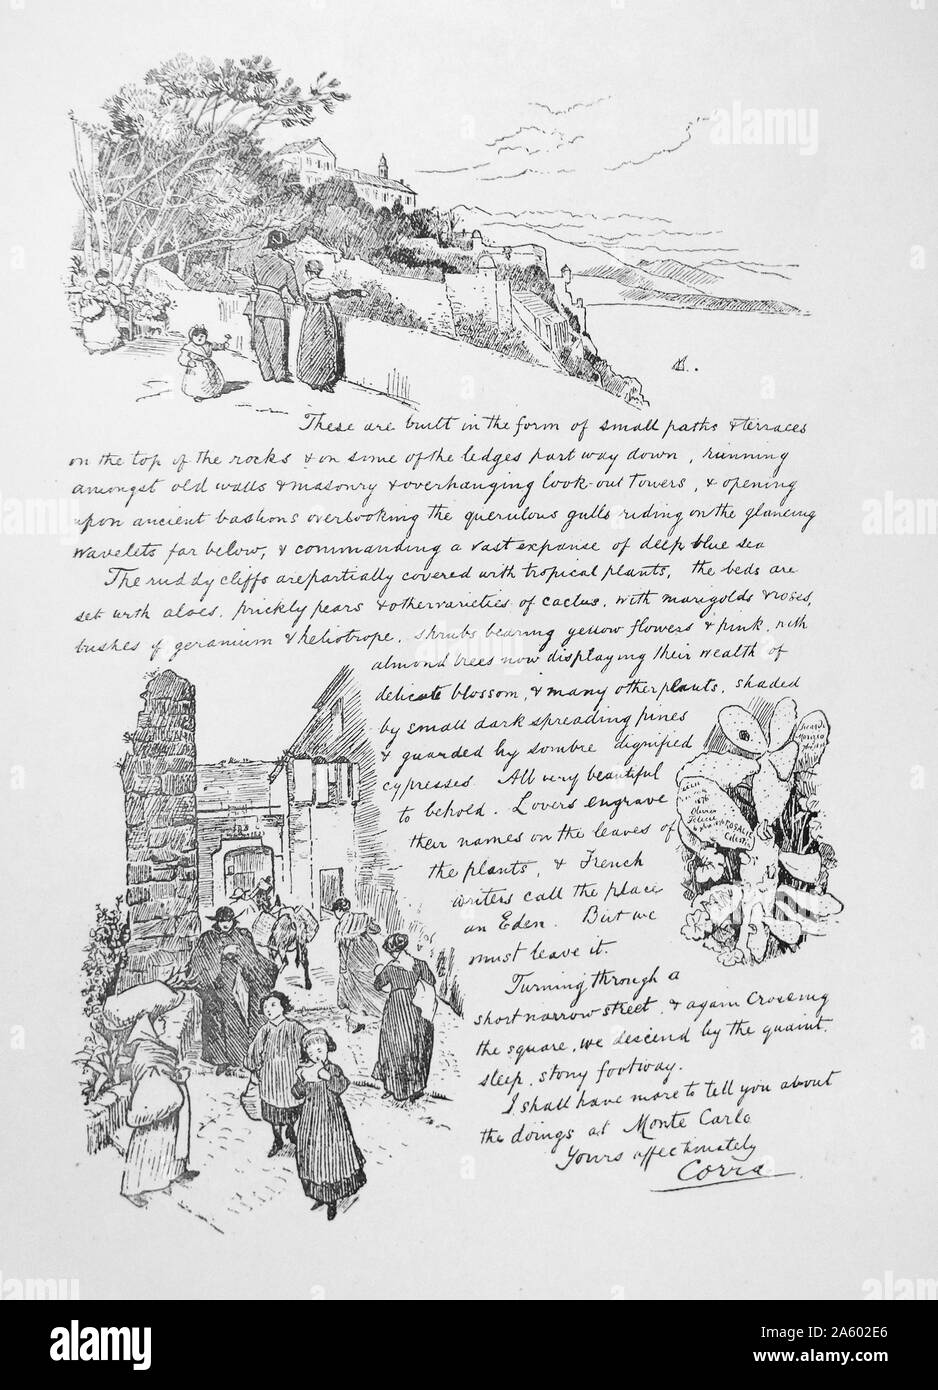 These are built in the form of small paths & terraces
on the top of the rocks & on some of the ledges part way down, running
amongst old walls & masonry & overhanging look-out towers, & opening
upon ancient bastions overlooking the querulous gulls riding on the glancing
wavelets far below, & commanding a vast expanse of deep blue sea
The ruddy cliffs are partially covered with tropical plants, the beds are
set with aloes, prickly pears & other varieties of cactus, with marigolds & roses,
bushes of geranium & heliotrope, shrubs bearing yellow flowers & pink, with
almond trees now displaying their wealth of
delicate blossom, & many other plants, shaded
by small dark spreading pines
& guarded by sombre dignified
cypresses All very beautiful
to behold. Lovers engrave
their names on the leaves of
the plants, & French
writers call the place
an Eden. But we
must leave it.
Turning through a
short narrow street, & again crossing
the square, we descend by the quaint,
steep, stony footway.
I shall have more to tell you about
the doings at Monte Carlo
Yours affectionately
Corra
1876
Olivier
Felicie
ROSALIE
Celestin
alamy
Image ID: 2A602E6
www.alamy.com